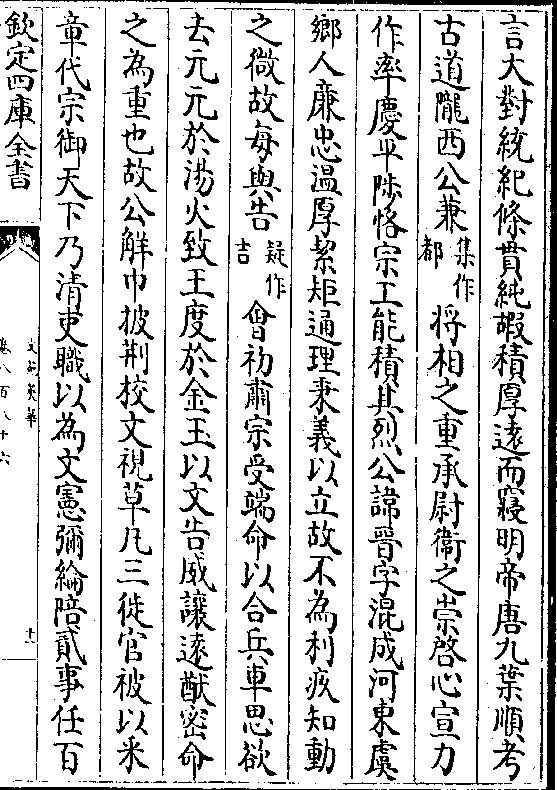 言大對統紀條貫純嘏積厚遠而寖明帝唐九葉順考
古道隴西公兼集作都將相之重承尉衞之崇啓心宣力
作率慶平陟恪宗工能積其烈公諱晉字混成河東虞
鄉人廉忠溫厚絜矩通理秉義以立故不為利疚知動
之微故每與告疑作吉會初肅宗受端命以合兵車思欲
去元元於湯火致王度於金玉以文告威讓遠猷密命
之為重也故公解巾披荆校文視草凡三徙官被以米
章代宗御天下乃清吏職以為文憲彌綸陪貳事任百
欽定四庫全書
文苑英華
卷八百八十六
十一